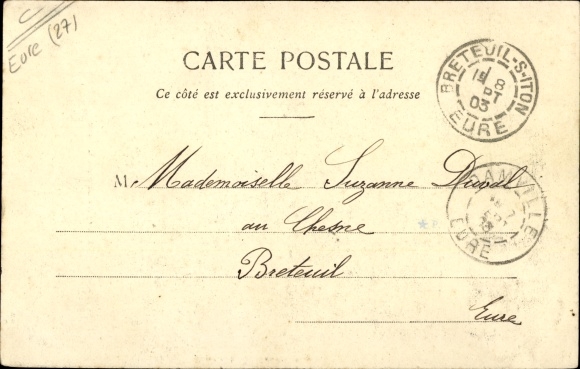 Eure (27)
CARTE POSTALE
Ce côté est exclusivement réservé à l'adresse
BRETEUIL-S-ITON
8
03
EURE
M Mademoiselle Suzanne Duval
DAMVILLE
EURE
au Chesne
Breteuil
Eure